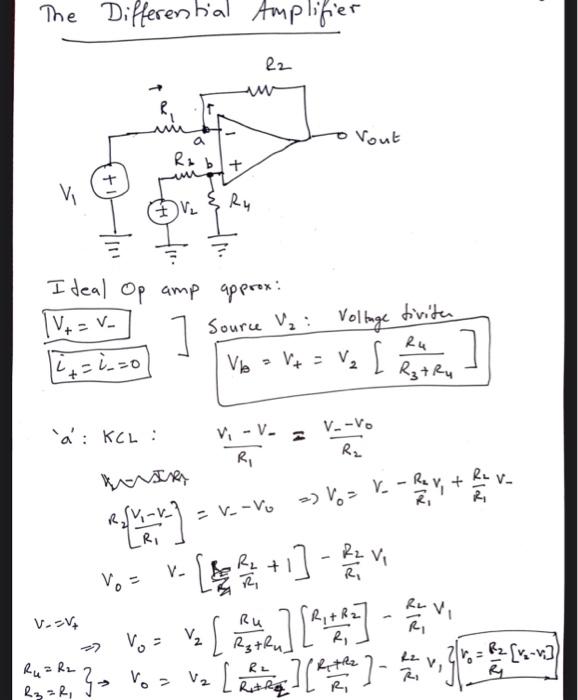 The Differential Amplifier
R2
R1
a
-
Vout
R3 b +
V1
V2
R4
Ideal Op amp approx:
V+ = V-
i+ = i- = 0
] Source V2: Voltage divider
Vb = V+ = V2 [ R4 / (R3+R4) ]
'a': KCL : (V1 - V-) / R1 = (V- - Vo) / R2
R2 [ (V1-V-) / R1 ] = V- - Vo => Vo = V- - R2/R1 V1 + R2/R1 V-
Vo = V- [ R2/R1 + 1 ] - R2/R1 V1
V- = V+
=> Vo = V2 [ R4 / (R3+R4) ] [ (R1+R2) / R1 ] - R2/R1 V1
R4 = R2
R3 = R1 } → Vo = V2 [ R2 / (R1+R2) ] [ (R1+R2) / R1 ] - R2/R1 V1 } Vo = R2/R1 [V2-V1]